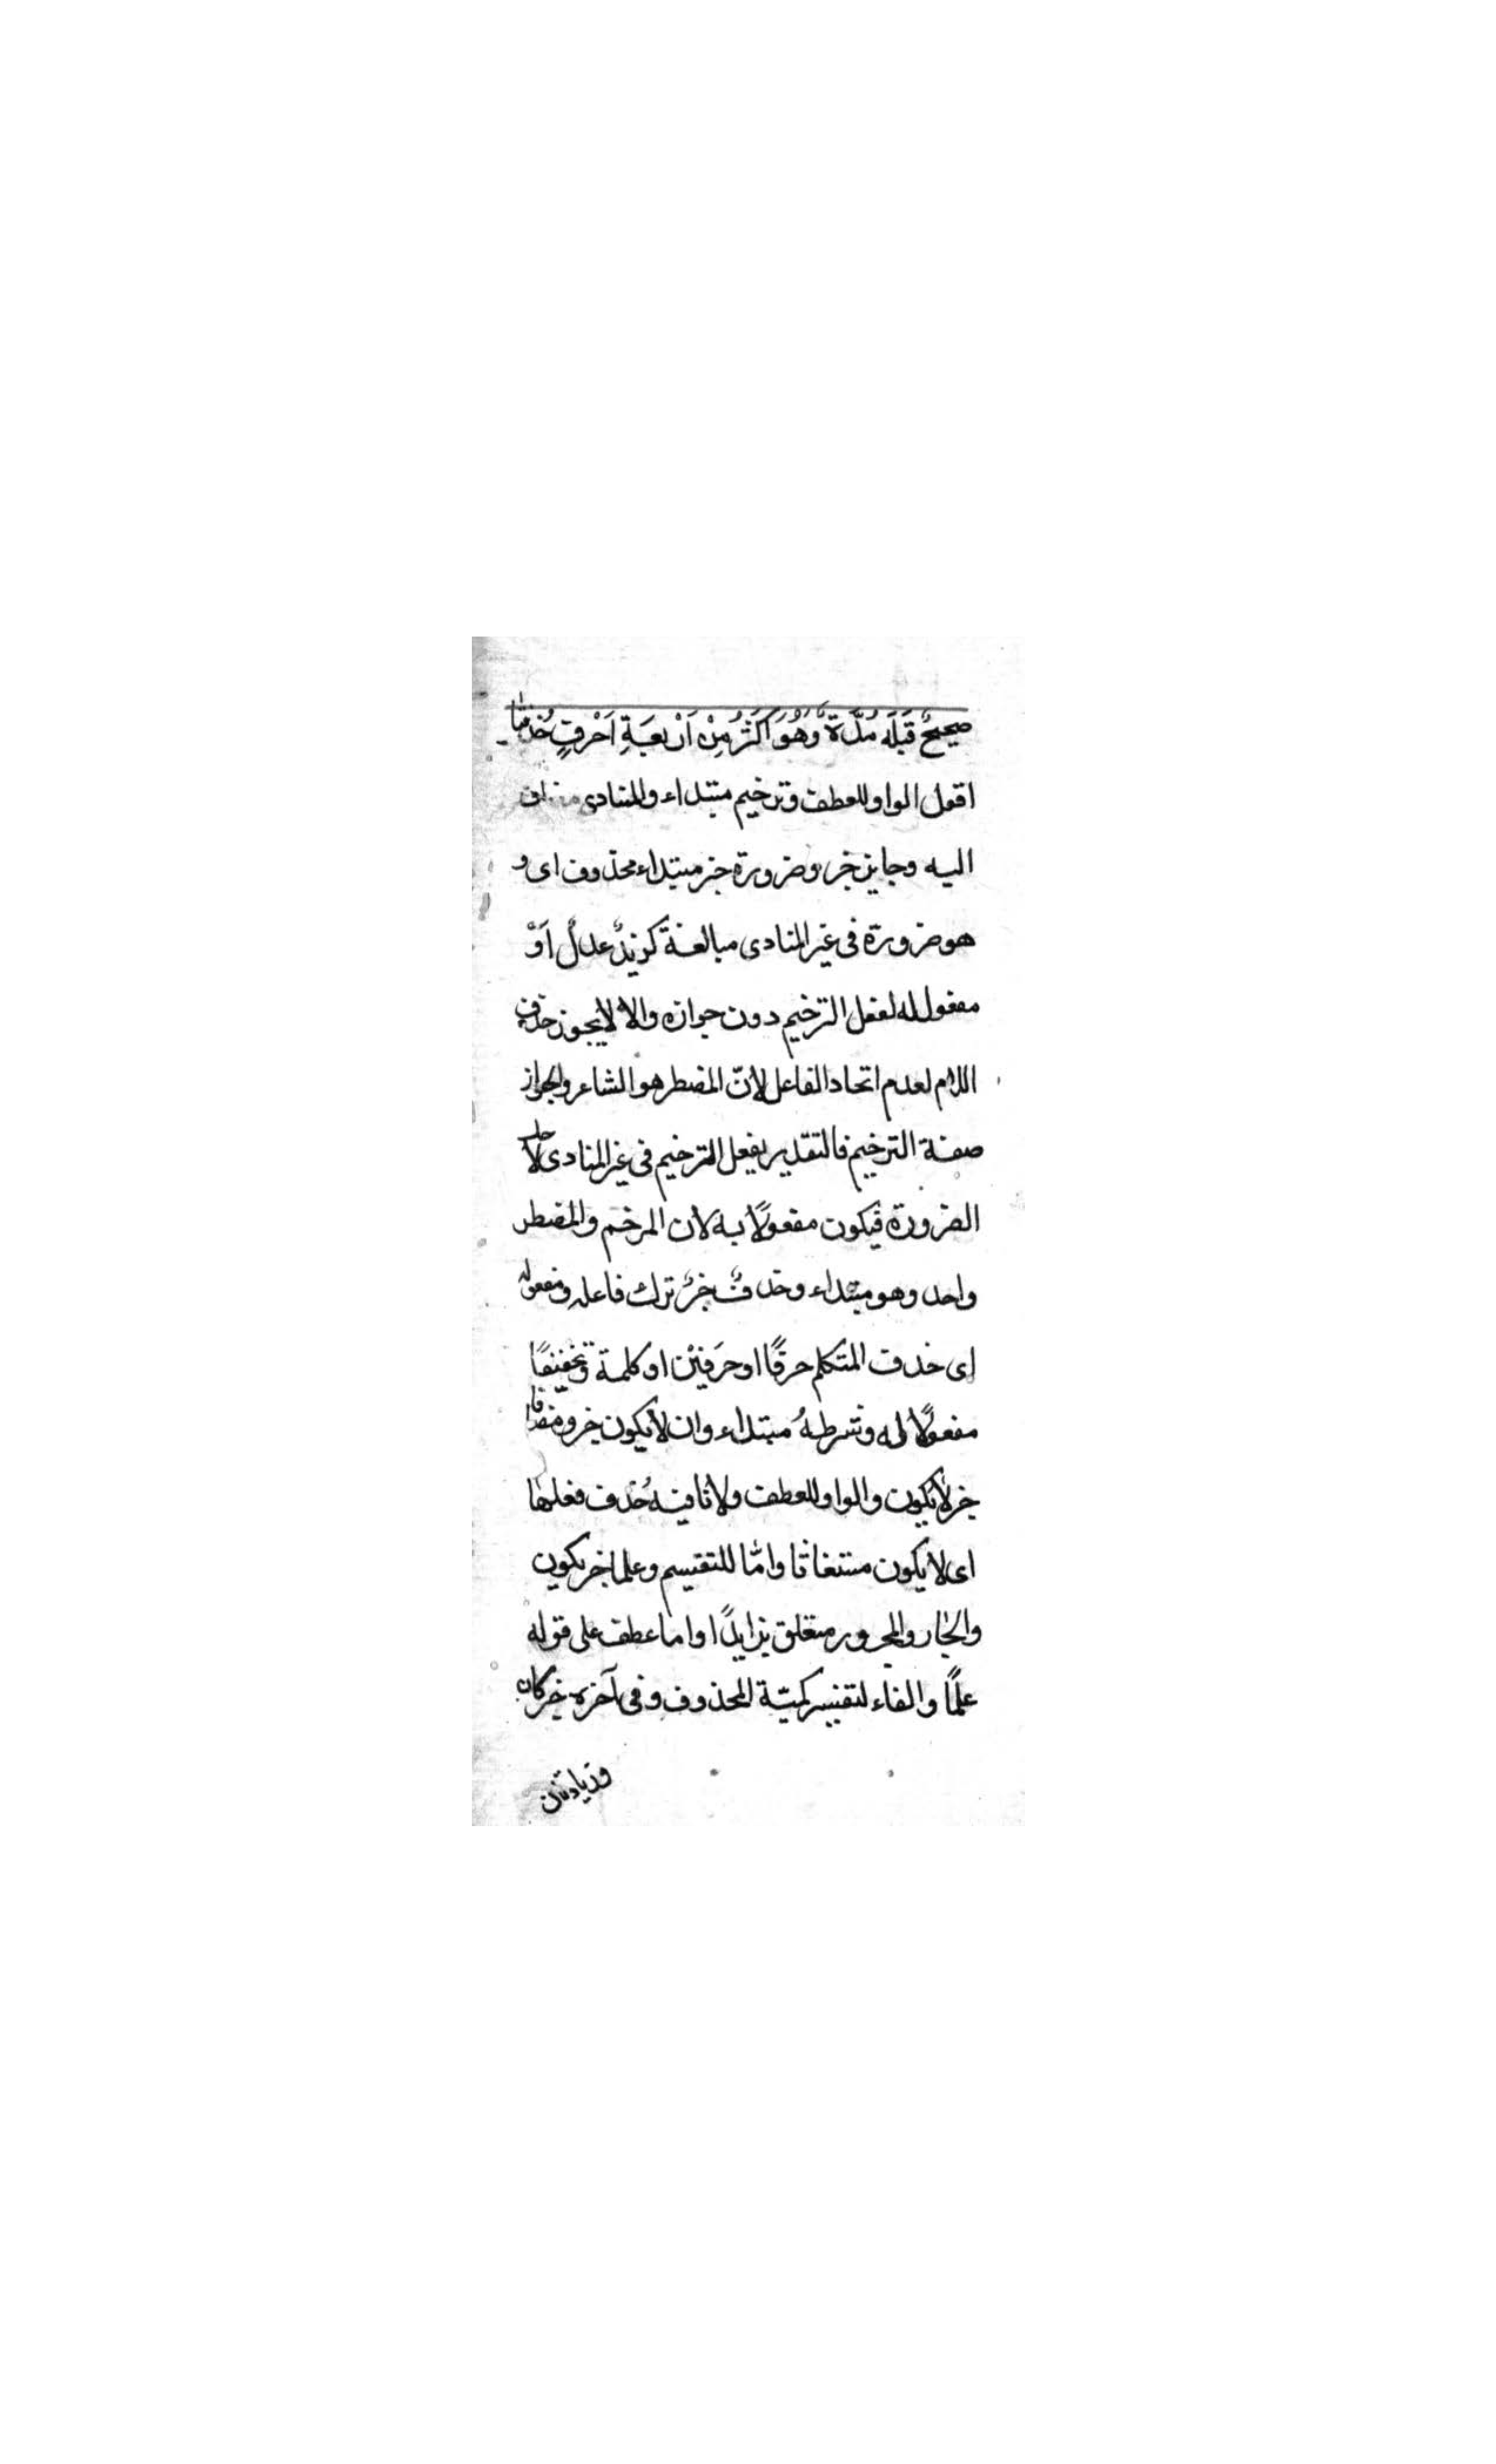 صحيحٌ قَبْلَه مُدَّةٌ وَهُوَ اَكْثَرُ مِنْ اَرْبَعَةِ اَحْرفٍ حُذِفتا
اقول الواو للعطف وترخيم مبتداء والمنادى مضاف
اليه وجايز خبر وضرورة خبر مبتداء محذوف اى و
هو ضرورة فى غير المنادى مبالغة كزيدٌ عدلٌ اَوْ
مفعول له لفعل الترخيم دون جوازه والا لا يجوز حذف
اللام لعدم اتحاد الفاعل لانّ المضطر هو الشاعر والجواز
صفة الترخيم فالتقدير يفعل الترخيم فى غير المنادى لاجل
الضرورة فيكون مفعولًا به لان المرخم والمضطر
واحد وهو مبتداء وحذفٌ خبرٌ ترك فاعله ومفعوله
اى حذف المتكلم حرفًا او حَرفَيْن او كلمة وتخفيفًا
مفعولًا له وشرطهُ مبتداء وان لا يكون خبر ومضافا
خبر لا يكون والواو للعطف ولا نافية حُذف فعلها
اى لا يكون مستغاثا وامّا للتقسيم وعلما خبر يكون
والجار والمجرور متعلق بزايدًا واما عطف على قوله
علمًا والفاء لتفسير كميّة المحذوف وفى آخره خبر كان
وزيادتان